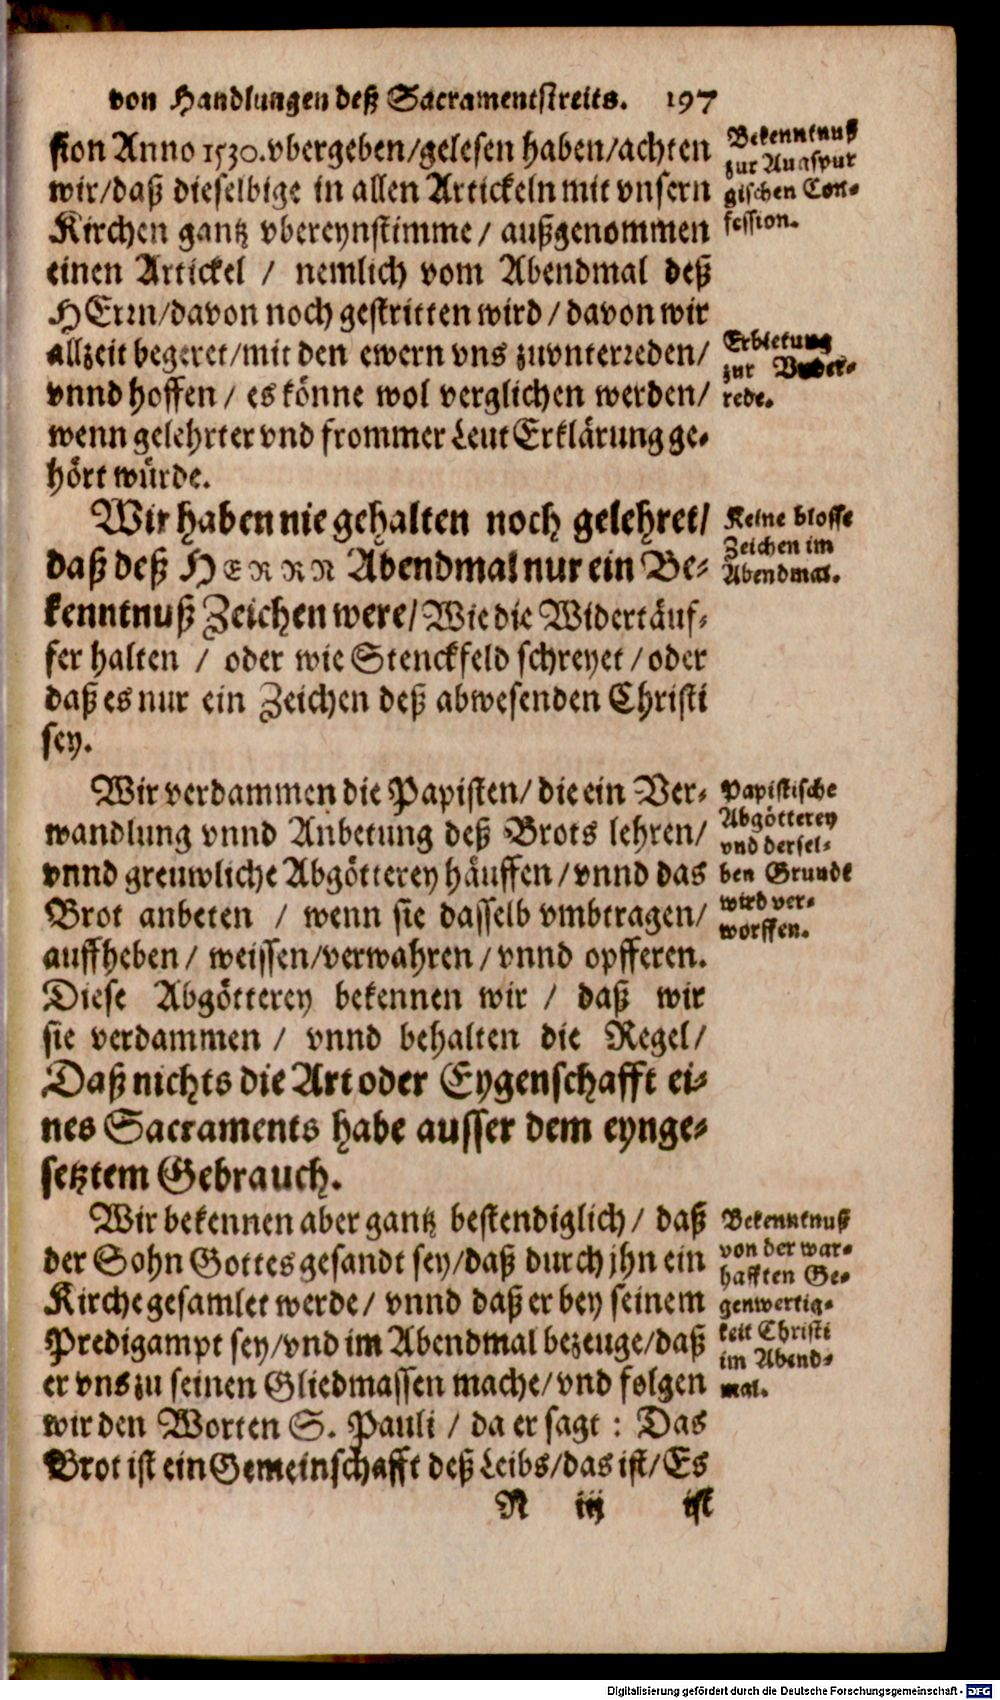 von Handlungen deß Sacramentstreits. 197
sion Anno 1530. vbergeben/gelesen haben/achten
wir/daß dieselbige in allen Artickeln mit vnsern
Kirchen gantz vbereynstimme / außgenommen
einen Artickel / nemlich vom Abendmal deß
HErrn/davon noch gestritten wird / davon wir
allzeit begeret/mit den ewern vns zuvnterreden/
vnnd hoffen / es könne wol verglichen werden/
wenn gelehrter vnd frommer Leut Erklärung ge-
hört würde.
Bekenntnuß
zur Augspur
gischen Con-
fession.
Erbietung
zur Vnder-
rede.
Wir haben nie gehalten noch gelehret/
daß deß HERRN Abendmal nur ein Be-
kenntnuß Zeichen were/ Wie die Widertäuf-
fer halten / oder wie Stenckfeld schreyet / oder
daß es nur ein Zeichen deß abwesenden Christi
sey.
Keine blosse
Zeichen im
Abendmal.
Wir verdammen die Papisten/ die ein Ver-
wandlung vnnd Anbetung deß Brots lehren/
vnnd greuwliche Abgötterey häuffen / vnnd das
Brot anbeten / wenn sie dasselb vmbtragen/
auffheben / weissen/verwahren / vnnd opfferen.
Diese Abgötterey bekennen wir / daß wir
sie verdammen / vnnd behalten die Regel/
Daß nichts die Art oder Eygenschafft ei-
nes Sacraments habe ausser dem eynge-
setztem Gebrauch.
Papistische
Abgötterey
vnd dersel-
ben Grunde
wird ver-
worffen.
Wir bekennen aber gantz bestendiglich / daß
der Sohn Gottes gesandt sey/daß durch jhn ein
Kirche gesamlet werde / vnnd daß er bey seinem
Predigampt sey/vnd im Abendmal bezeuge/daß
er vns zu seinen Gliedmassen mache/ vnd folgen
wir den Worten S. Pauli / da er sagt : Das
Brot ist ein Gemeinschafft deß Leibs/das ist/ Es
Bekenntnuß
von der war-
hafften Ge-
genwertig-
keit Christi
im Abend-
mal.
N iij ist
Digitalisierung gefördert durch die Deutsche Forschungsgemeinschaft - DFG